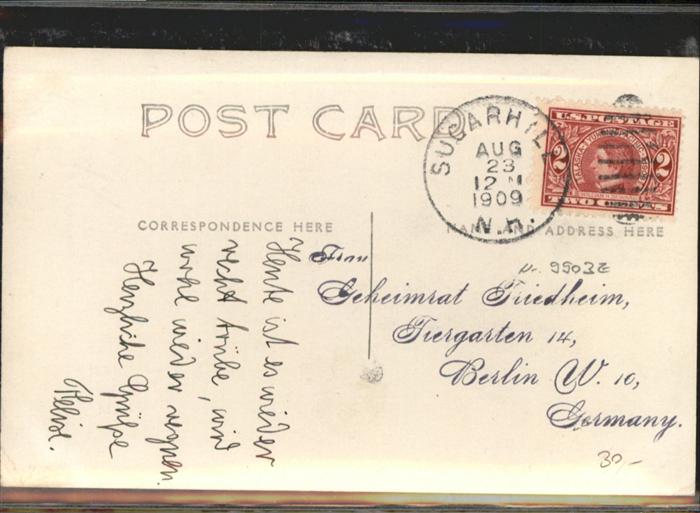 POST CARD
SUGARHILL
AUG
23
12 M
1909
N.H.
U.S. POSTAGE
2 2
TWO CENTS
CORRESPONDENCE HERE
NAME AND ADDRESS HERE
Heute ist es wieder
recht trübe, wird
wohl wieder regnen.
Herzliche Grüße
Frau
Geheimrat Friedheim,
Tiergarten 14,
Berlin W. 10,
Germany.
30,-